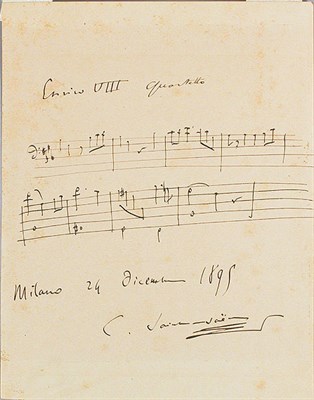 Enrico VIII quartetto
Milano 24 Dicembre 1895
C. Saint-Saëns